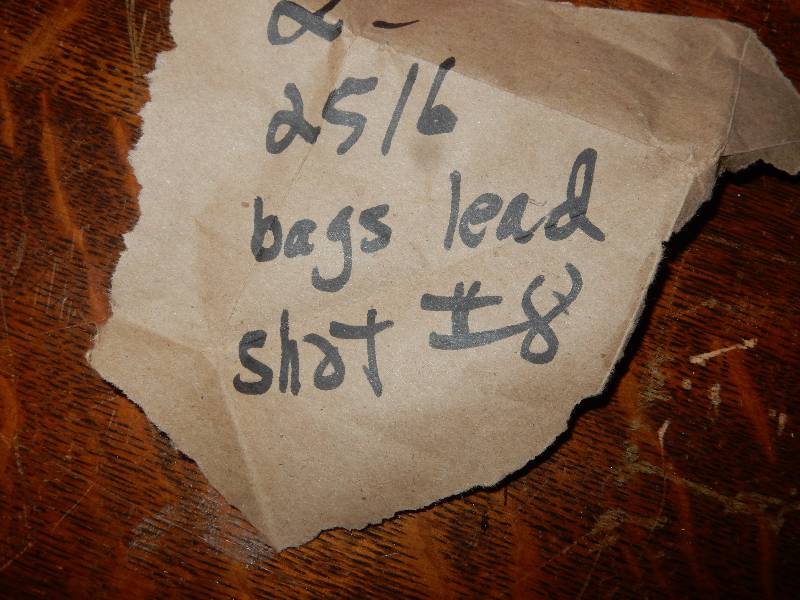 2 -
25 lb
bags lead
shot #8